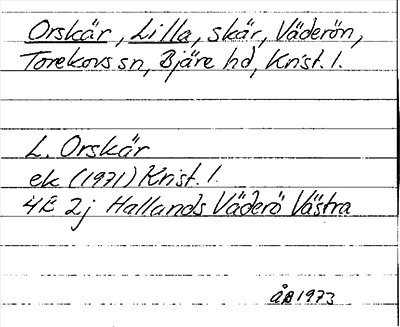 Orskär, Lilla, skär, Väderön,
Torekovs sn, Bjäre hd, Krist. l.
L. Orskär
ek (1971) Krist. l.
4E 2j Hallands Väderö Västra
ÅB 1973